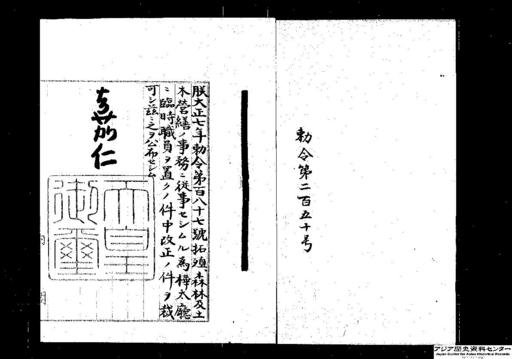 勅令第二百五十号
朕大正七年勅令第百八十七號拓殖、森林及土
木営繕ノ事務ニ従事セシムル為樺太廳
ニ臨時職員ヲ置クノ件中改正ノ件ヲ裁
可シ茲ニ之ヲ公布セシム
嘉仁
天皇
御璽
アジア歴史資料センター
Japan Center for Asian Historical Records